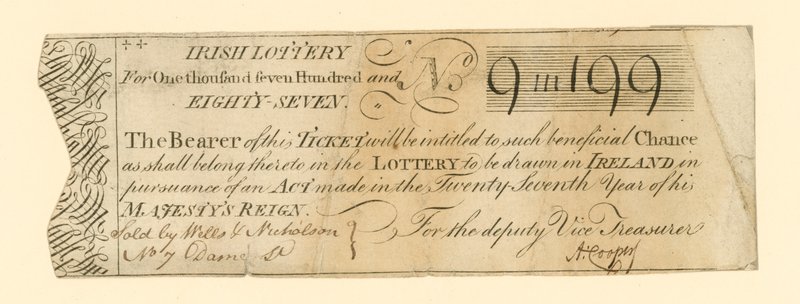 IRISH LOTTERY
For One thousand seven Hundred and No 9m199
EIGHTY-SEVEN.
The Bearer of this TICKET will be intitled to such beneficial Chance
as shall belong thereto in the LOTTERY to be drawn in IRELAND in
pursuance of an ACT made in the Twenty Seventh Year of his
MAJESTY'S REIGN.
For the deputy Vice Treasurer
Sold by Wells & Nicholson
No 7 Dame St
A. Cooper